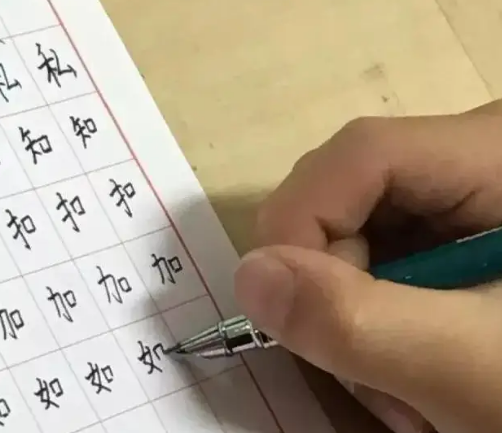 私 私
知 知
扣 扣 扣
加 加 加 加
如 如 如 如